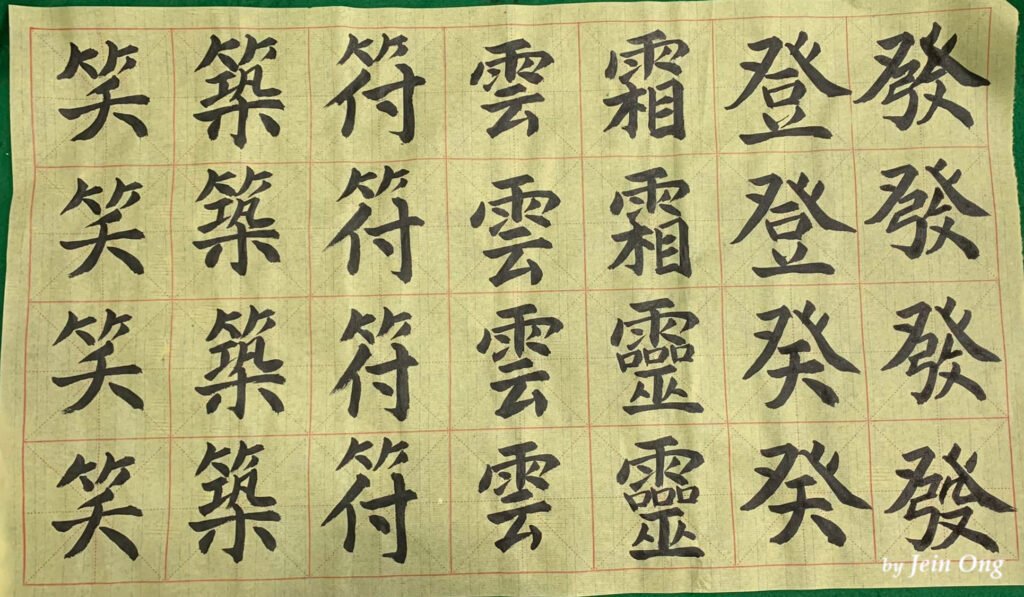 發發發發
登登癸癸
霜霜靈靈
雲雲雲雲
符符符符
築築築築
笑笑笑笑
by Jein Ong